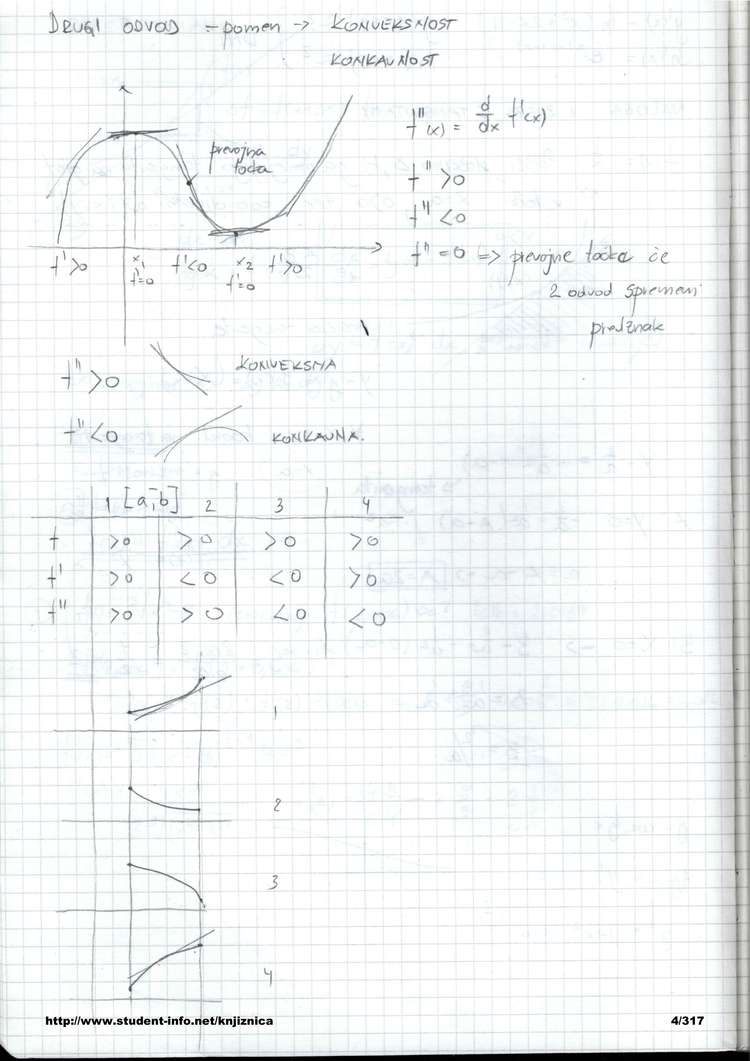 DRUGI ODVOD – pomen → KONVEKSNOST
KONKAVNOST
x
prevojna
točka
f'>0 x1 f'<0 x2 f'>0
f'=0 f'=0
f''(x) = d/dx f'(x)
f''>0
f''<0
f''=0 => prevojne točke če
2 odvod spremeni
predznak
f''>0 KONVEKSNA
f''<0 KONKAVNA.
1 [a,b] 2 3 4
f >0 >0 >0 >0
f' >0 <0 <0 >0
f'' >0 >0 <0 <0
1
2
3
4
http://www.student-info.net/knjiznica 4/317